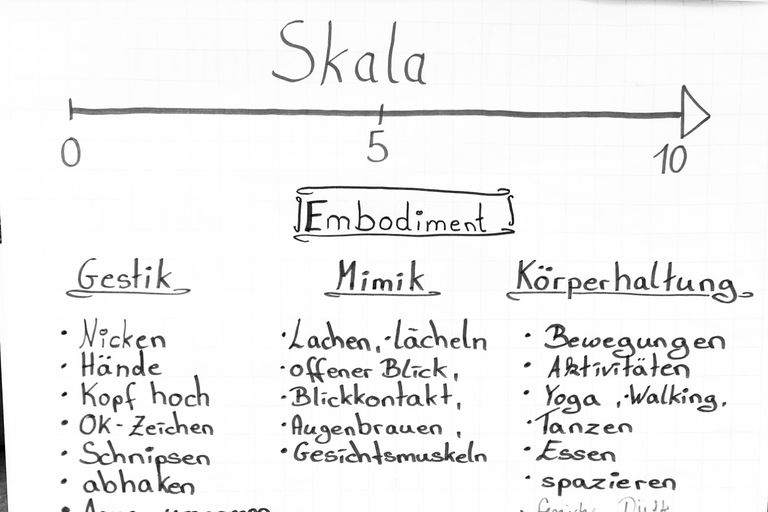 Skala
0 5 10
Embodiment
Gestik
• Nicken
• Hände
• Kopf hoch
• OK-Zeichen
• Schnipsen
• abhaken
Mimik
• Lachen, • lächeln
• offener Blick,
• Blickkontakt,
• Augenbrauen,
• Gesichtsmuskeln
Körperhaltung
• Bewegungen
• Aktivitäten
• Yoga, • Walking,
• Tanzen
• Essen
• spazieren